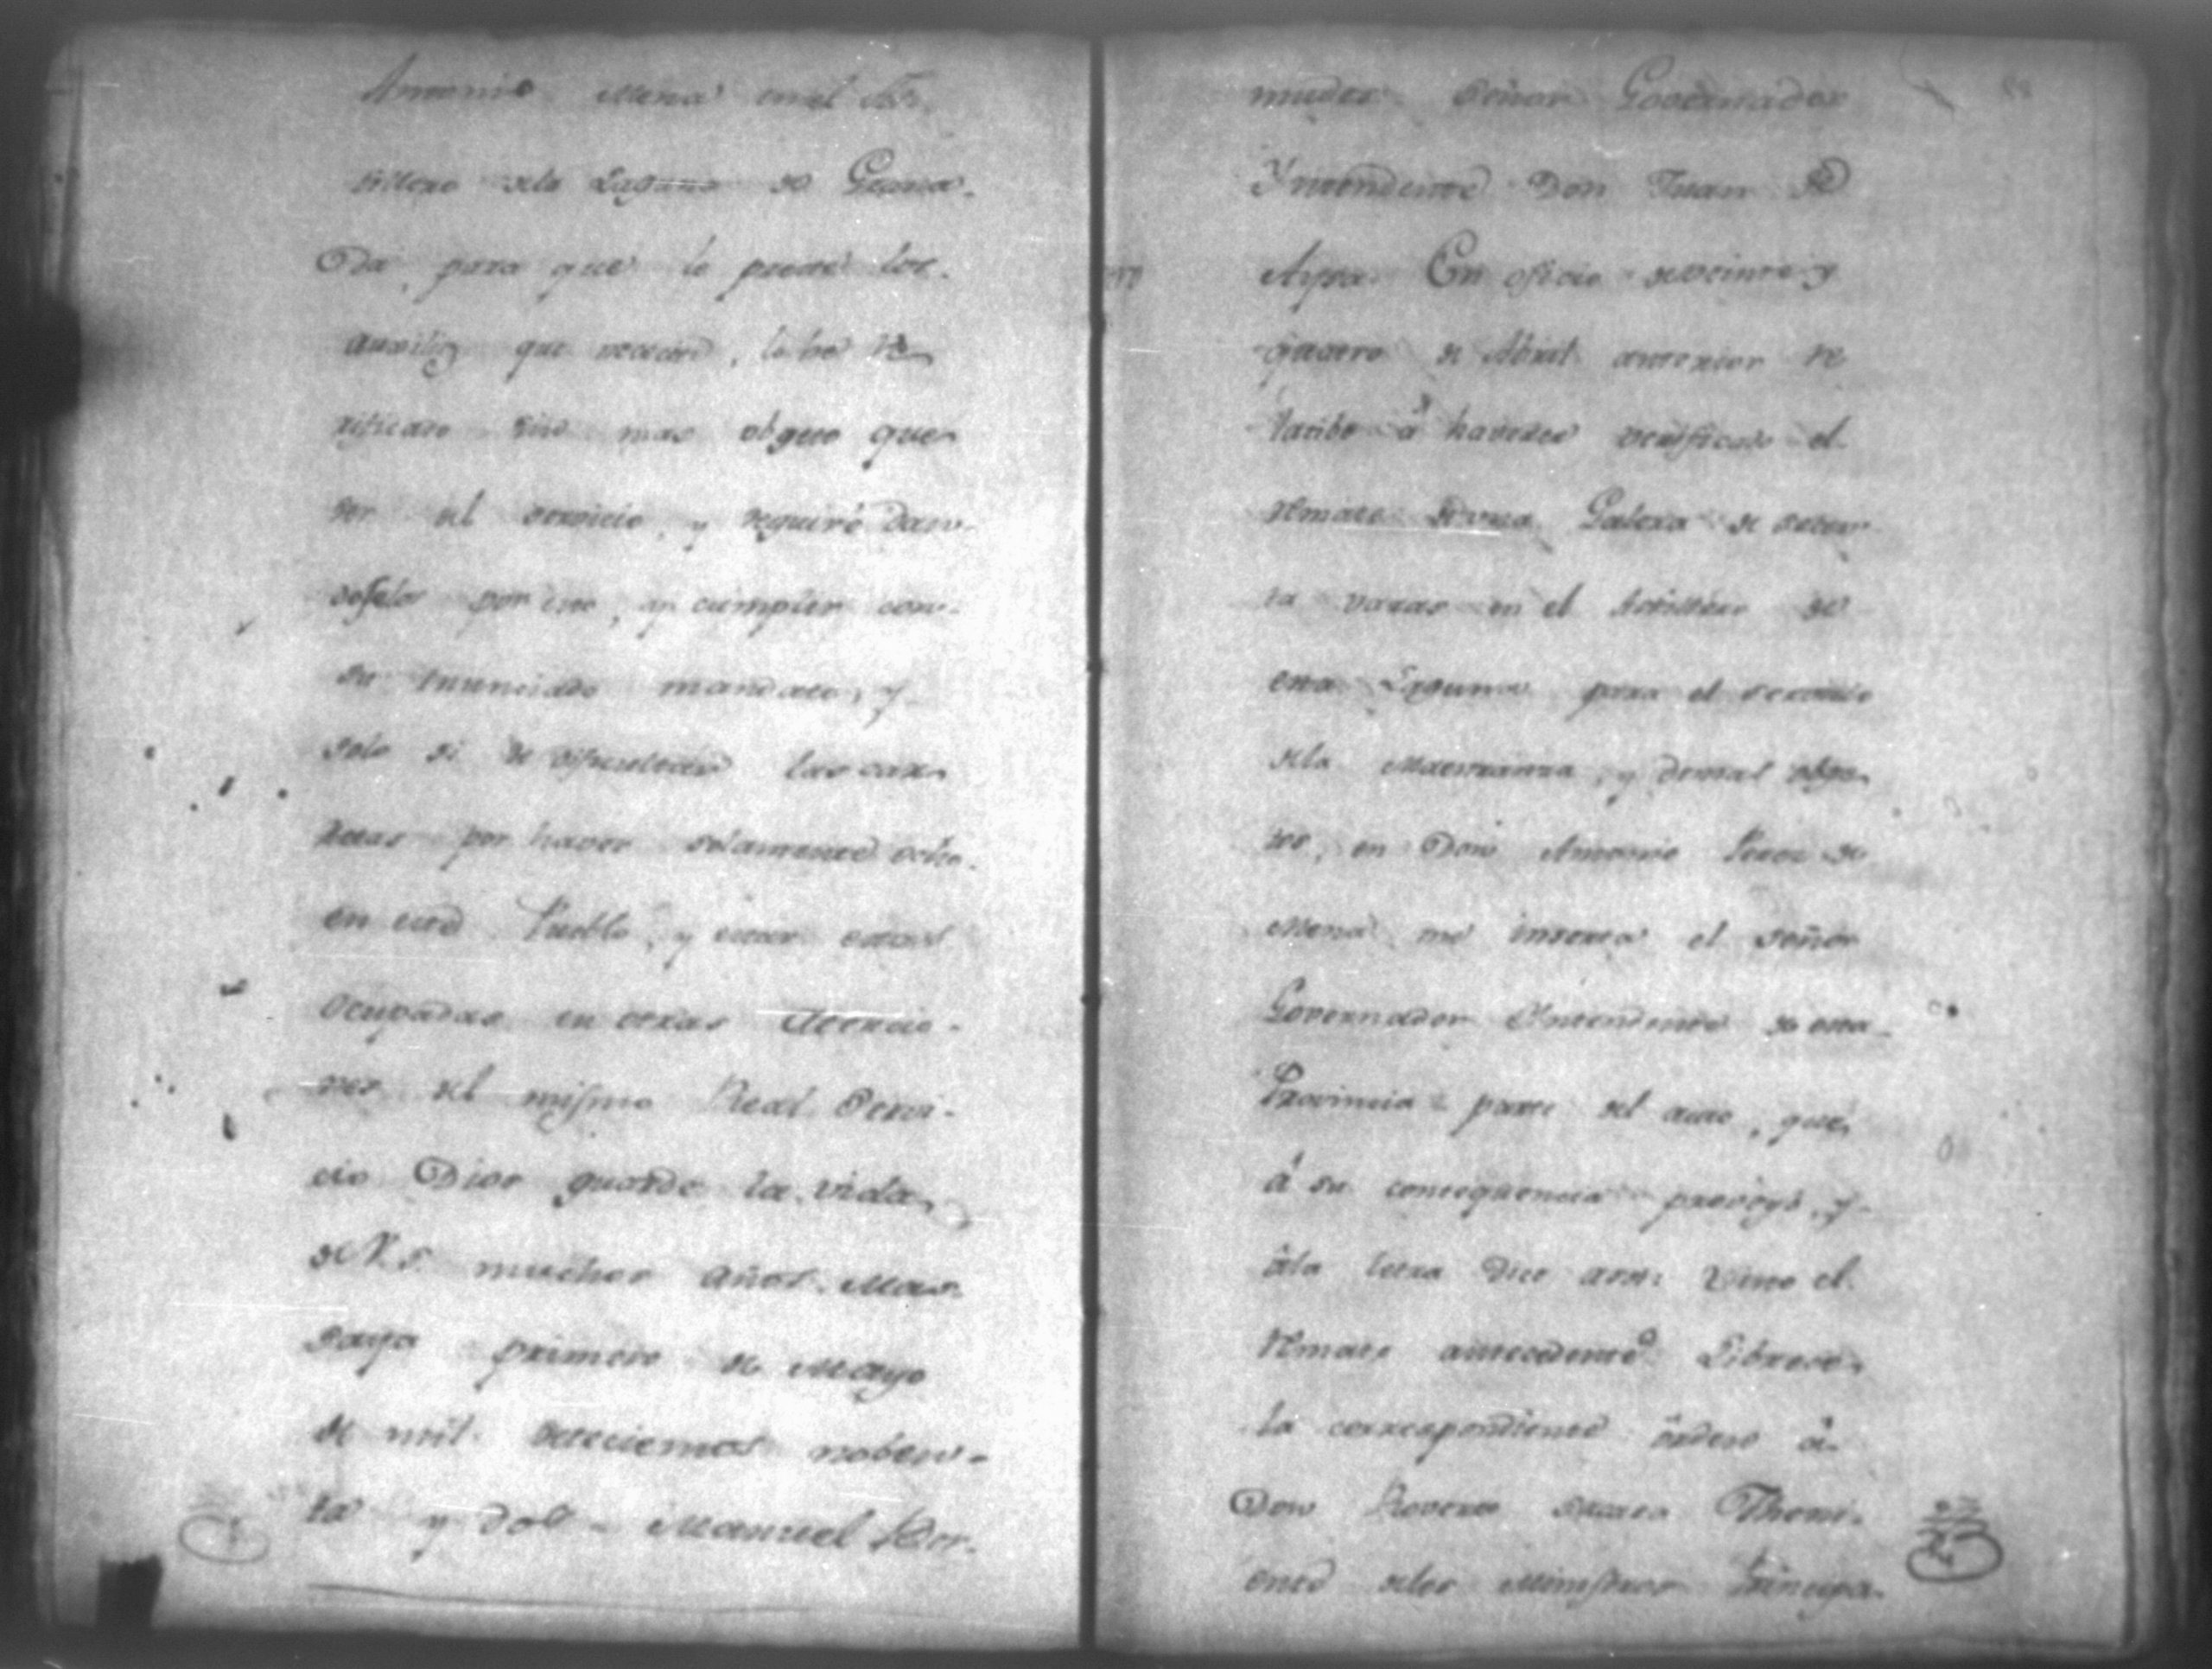 Antonio Mena en el As-
tillero dela Laguna de Grana-
da, para que le preste los
auxilios que necesite, lo he ve-
rificado sin mas obgeto que
ser del servicio, y seguiré dan-
doselos por este, y cumplir con
su enunciado mandato, y
solo se dificultan las carre-
tas por haver solamente ocho
en este Pueblo, y estar estas
ocupadas en otras atencio-
nes del mismo Real Servi-
cio Dios guarde la vida
de V. S. muchos años. Ma-
saya primero de Mayo
de mil setecientos noben-
ta y dos = Manuel Ber-
mudez Señor Governador
Yntendente Don Juan de
Aysa. En oficio de veinte y
quatro de Abril anterior re-
latibo á haverse verificado el
remate de una Galera de seten-
ta varas en el Astillero de
esta Laguna para el servicio
dela Maestranza, y demas obge-
tos, en Don Antonio Perez de
Mena me inserta el Señor
Governador Yntendente de esta
Provincia parte del auto, que
á su consequencia proveyó, y
ála letra dice asi: Visto el
remate antecedente Librese
la correspondiente órden á
Don Roverto Theni-
ente delos Ministros Principa-